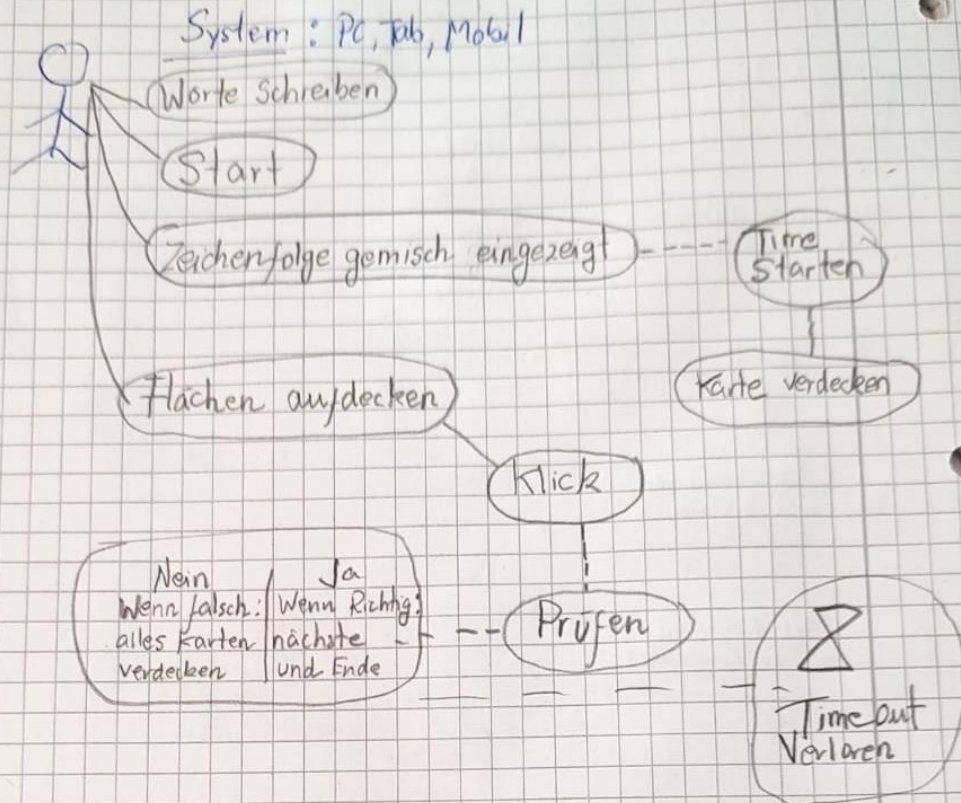 System : PC, Tab, Mobil
Worte Schreiben
Start
Zeichenfolge gemisch eingezeigt
Time
Starten
Karte verdecken
Flächen aufdecken
Klick
Prüfen
Nein
Wenn falsch:
alles Karten
verdecken
Ja
Wenn Richtig:
nächste
und Ende
Timeout
Verloren